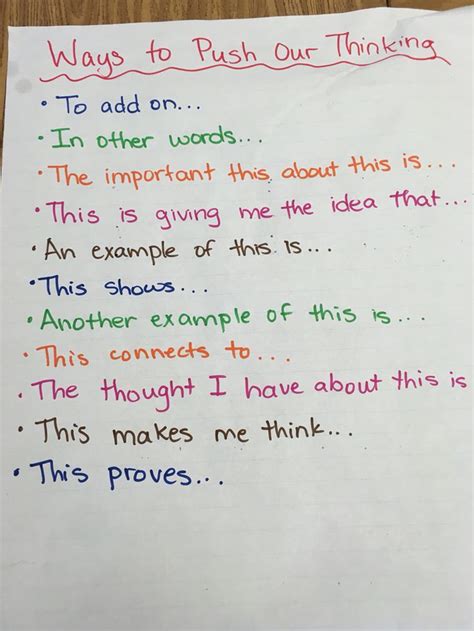 Ways to Push Our Thinking
• To add on...
• In other words...
• The important this about this is...
• This is giving me the idea that...
• An example of this is...
• This shows...
• Another example of this is...
• This connects to...
• The thought I have about this is
• This makes me think...
• This proves...